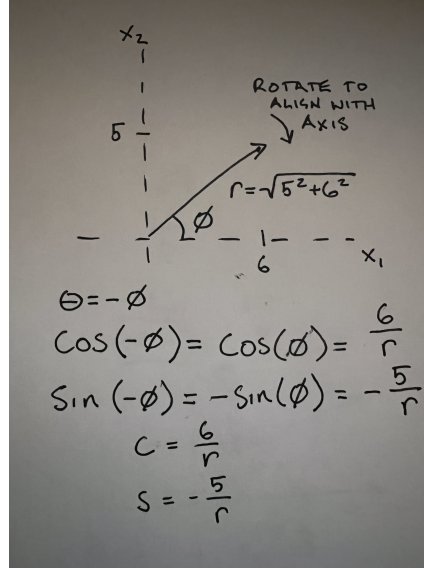 x₂
ROTATE TO
ALIGN WITH
AXIS
5
r=√5²+6²
Ø
6
x₁
Θ=-Ø
Cos(-Ø)= Cos(Ø)= 6/r
Sin(-Ø)= -Sin(Ø)= -5/r
C = 6/r
S = -5/r